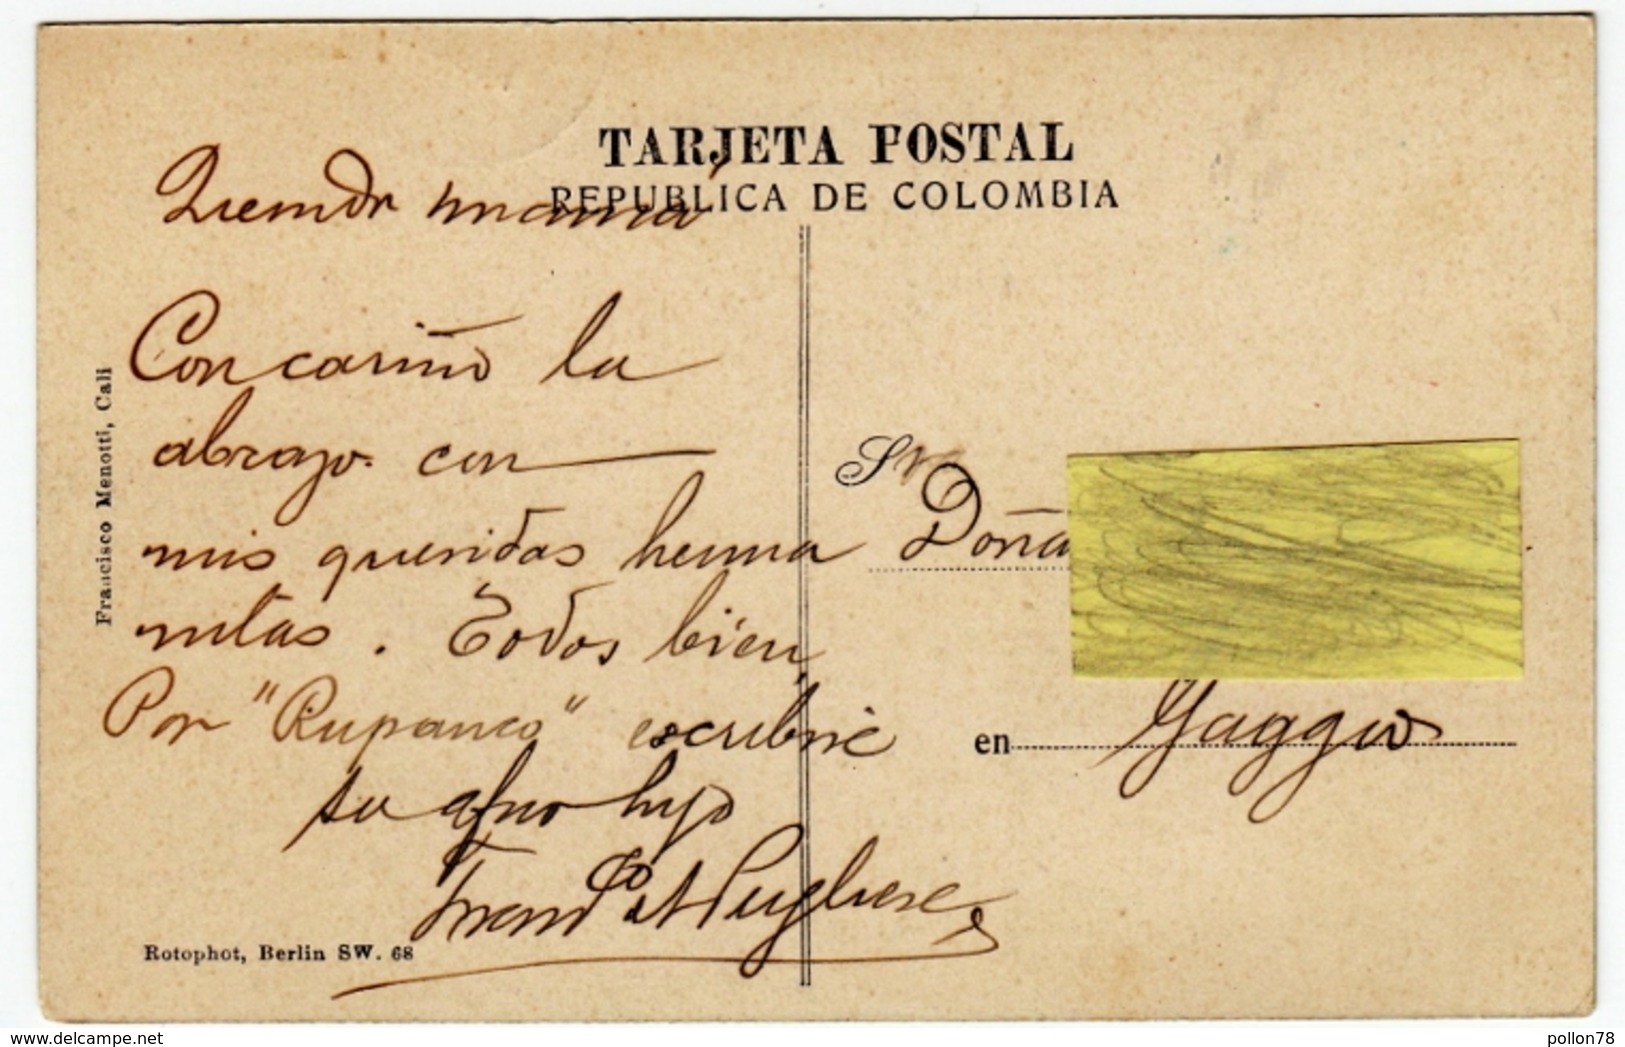 TARJETA POSTAL
REPUBLICA DE COLOMBIA
Querida mamá
Con cariño la
abrazo con
mis queridas herma
nitas. Todos bien,
Por "Rupanco" escribiré
su afmo hijo
Pugliese
Francisco Menotti, Cali
Rotophot, Berlin SW. 68
Sra
Doña
en Gaggio
delcampe.net
pollon78